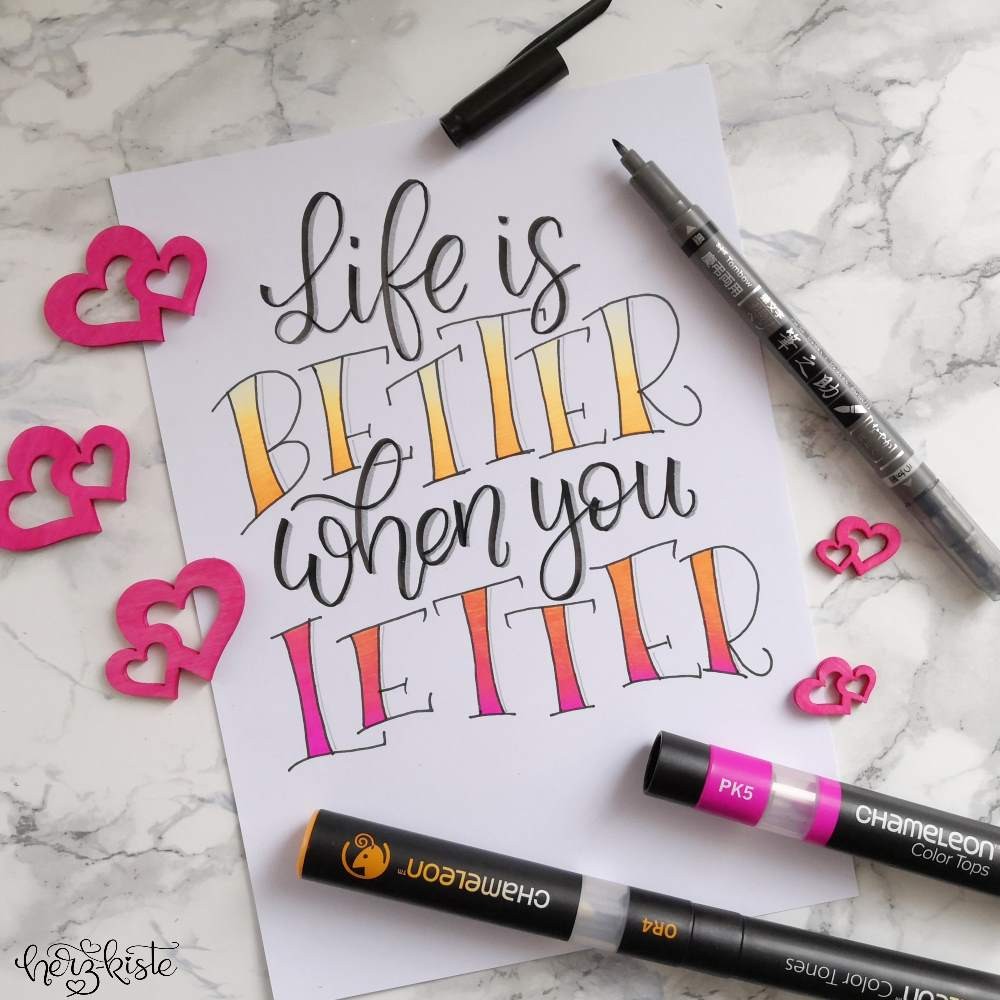 Life is
BETTER
when you
LETTER
Tombow
慶弔両用
筆之助
PK5
CHAMELEON
Color Tops
CHAMELEON™
OR4
CHAMELEON
Color Tones
herz-kiste